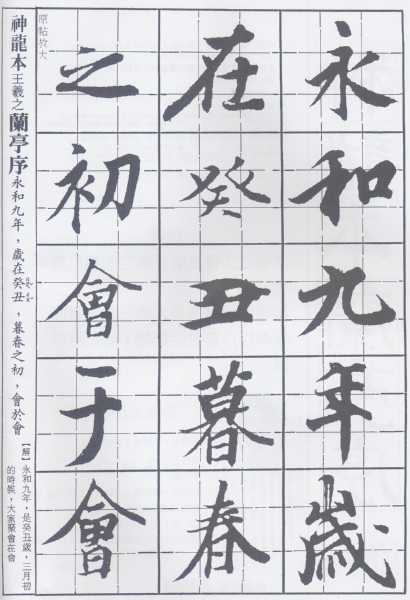 永和九年歲
在癸丑暮春
之初會于會
原帖放大
神龍本王羲之蘭亭序 永和九年，歲在癸丑，暮春之初，會於會
【解】永和九年，是癸丑歲，三月初
的時候，大家聚會在會